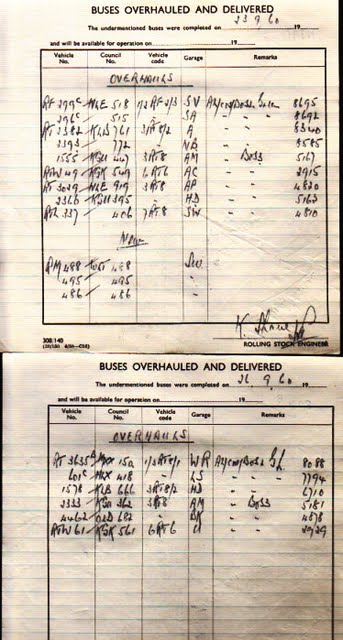 BUSES OVERHAULED AND DELIVERED
The undermentioned buses were completed on 23.9.60 19
and will be available for operation on 19
Vehicle No. Council No. Vehicle code Garage Remarks
OVERHAULS
RF 299c NLE 518 1/2RF2/3 SV 8695
296c 515 " SA " " 8692
RT 2382 KLB 761 3RT8/2 A " " 8340
2393 772 " NB " " 8585
1555 KGU 3RT8 AM " Boss 5167
RTW 49 KGK 549 6RT6 AC " " 2915
RT 3029 NLE 919 3RT8 AP " " 4820
2366 395 " HD " " 5163
RTL 337 406 7RT8 SW " " 4810
New
RM 488 488 SW
495 495 "
486 486 "
ROLLING STOCK ENGINEER
308/140
BUSES OVERHAULED AND DELIVERED
The undermentioned buses were completed on 26.9.60 19
and will be available for operation on 19
Vehicle No. Council No. Vehicle code Garage Remarks
OVERHAULS
RT 3635 150 WR 8088
601c HLX 418 " LS " " 7794
1578 KLB 666 3RT8/2 HD " " 6710
2333 KGU 362 3RT8 AM " Boss 5181
4462 682 " BK " " 4878
RTW 61 KGK 561 6RT6 U " " 2929